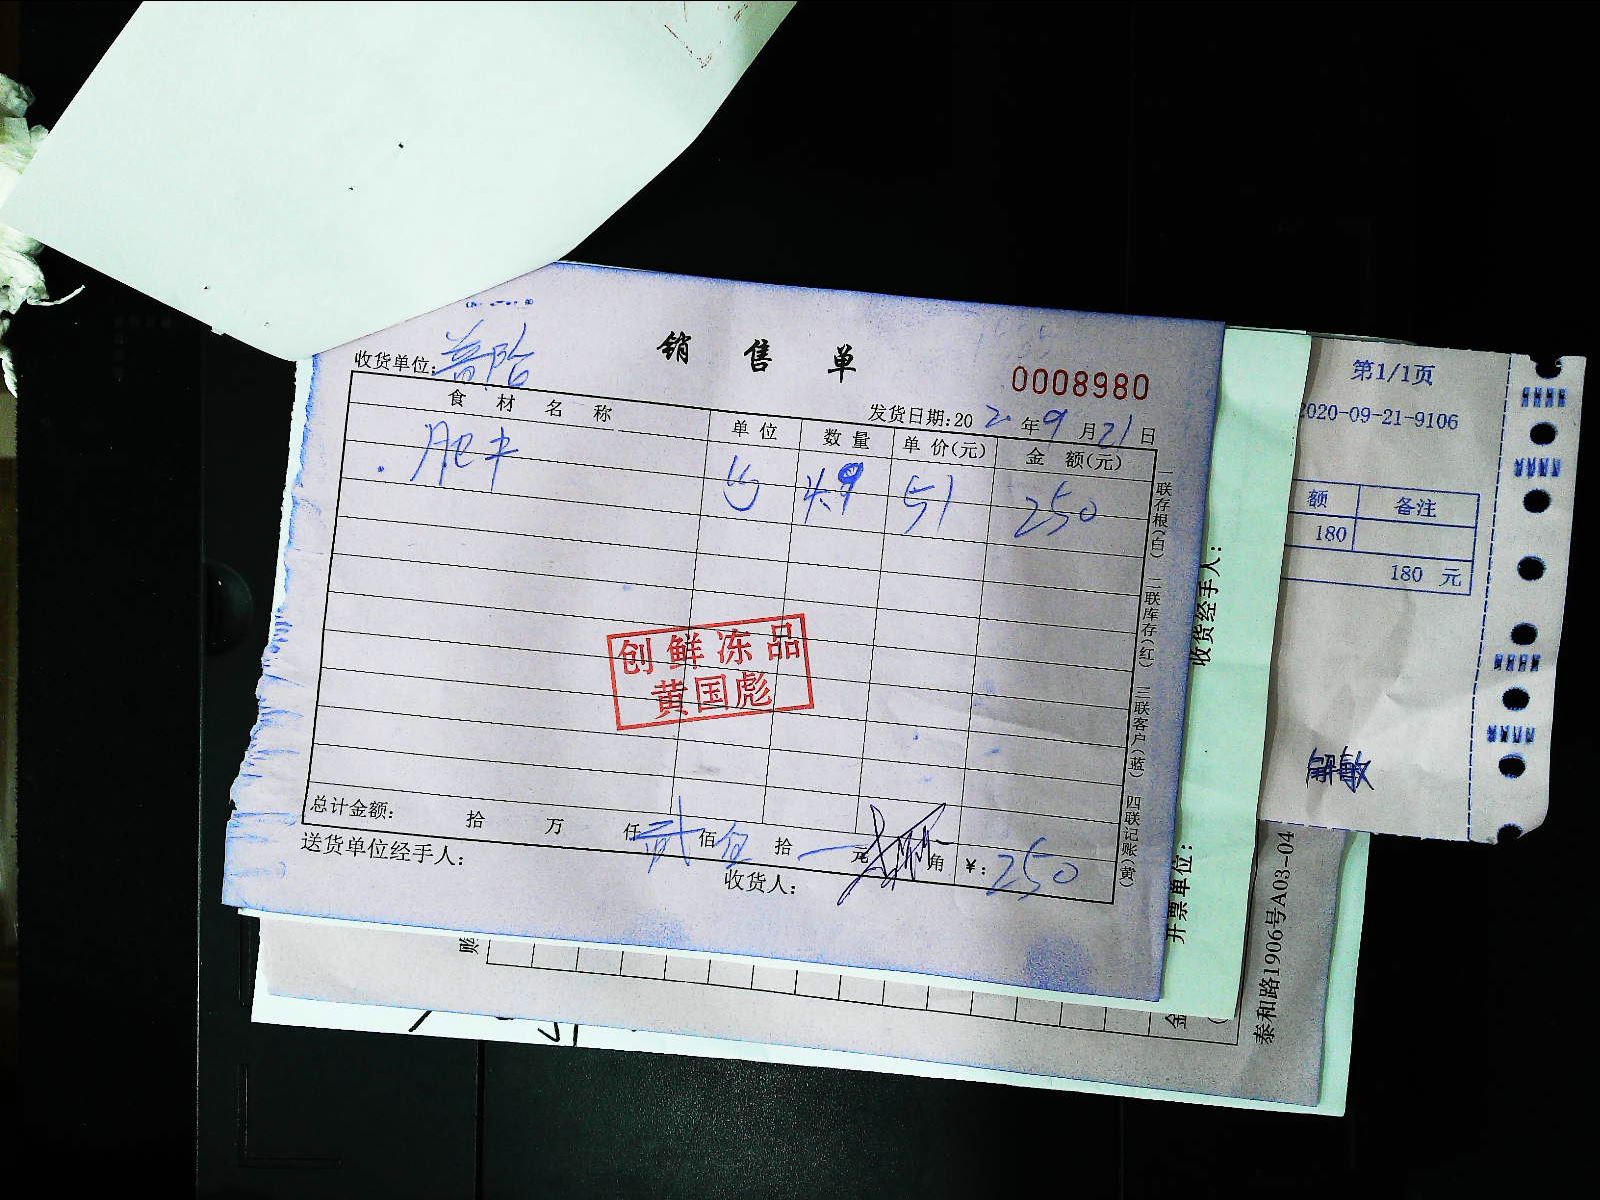 销售单
0008980
收货单位:
发货日期:20 2 年 9 月 21 日
食材名称 单位 数量 单价(元) 金额(元)
肥牛 4.9 51 250
创鲜冻品
黄国彪
总计金额: 拾 万 仟 贰 佰 伍 拾 元 角 ¥: 250
送货单位经手人:
收货人:
一联存根(白) 二联库存(红) 三联客户(蓝) 四联记账(黄)
收货经手人:
开票单位:
泰和路1906号A03-04
账
金
第1/1页
2020-09-21-9106
额 备注
180
180 元